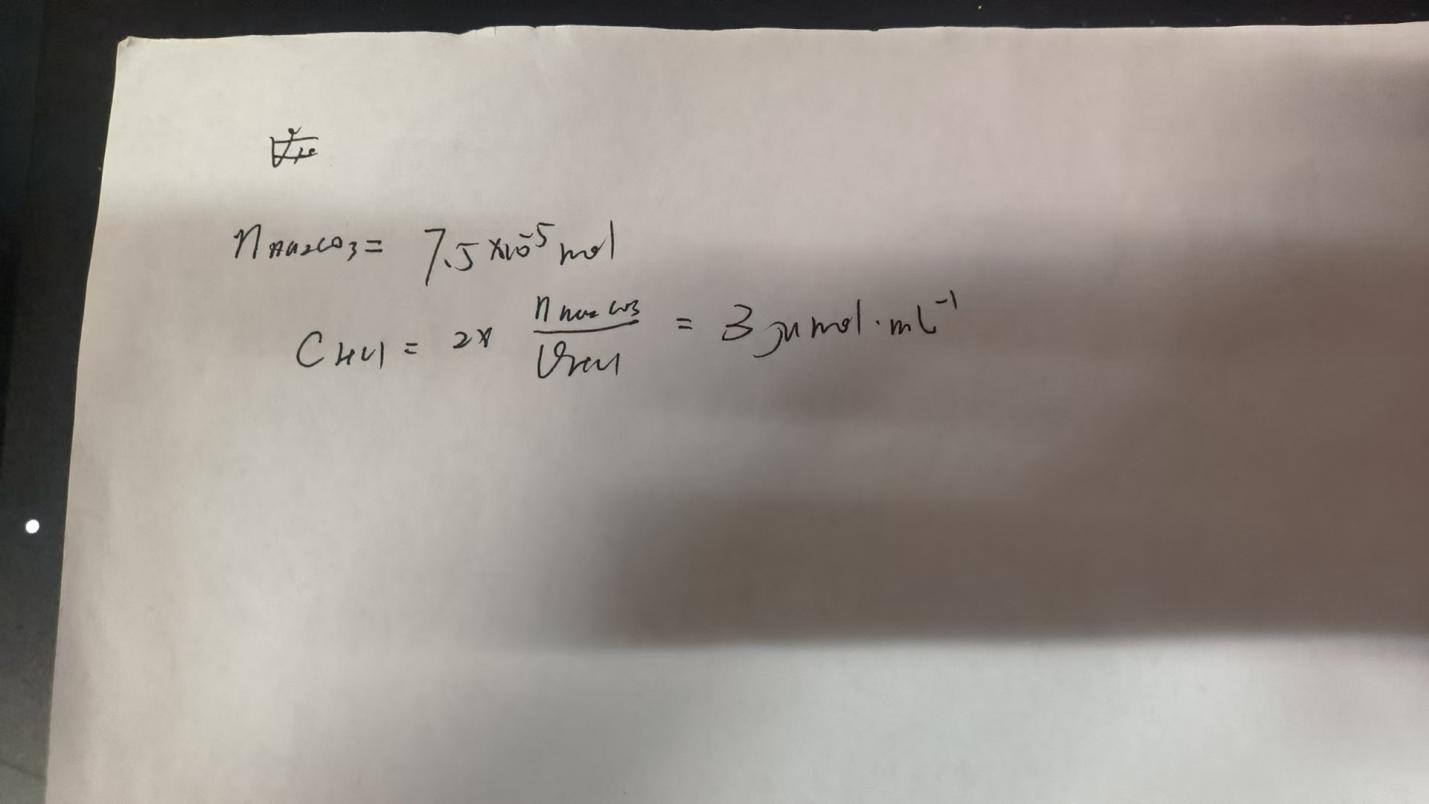 n Na₂CO₃ = 7.5 ×10⁻⁵ mol
C HCl = 2× n Na₂CO₃ / V HCl = 3 μmol·mL⁻¹